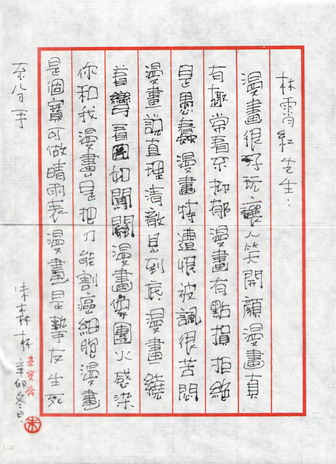 林霄紅先生：
漫畫很好玩讓人笑開顏漫畫真
有趣常看不抑郁漫畫有點損拒絕
是愚蠢漫畫特遭恨被諷很苦悶
漫畫說真理清澈見到底漫畫繞
着彎看圖如闖關漫畫像團火感染
你和我漫畫是把刀能割癌細胞漫畫
是個寶可做晴雨表漫畫是摯友生死
不分手
朱森林 辛卯冬日